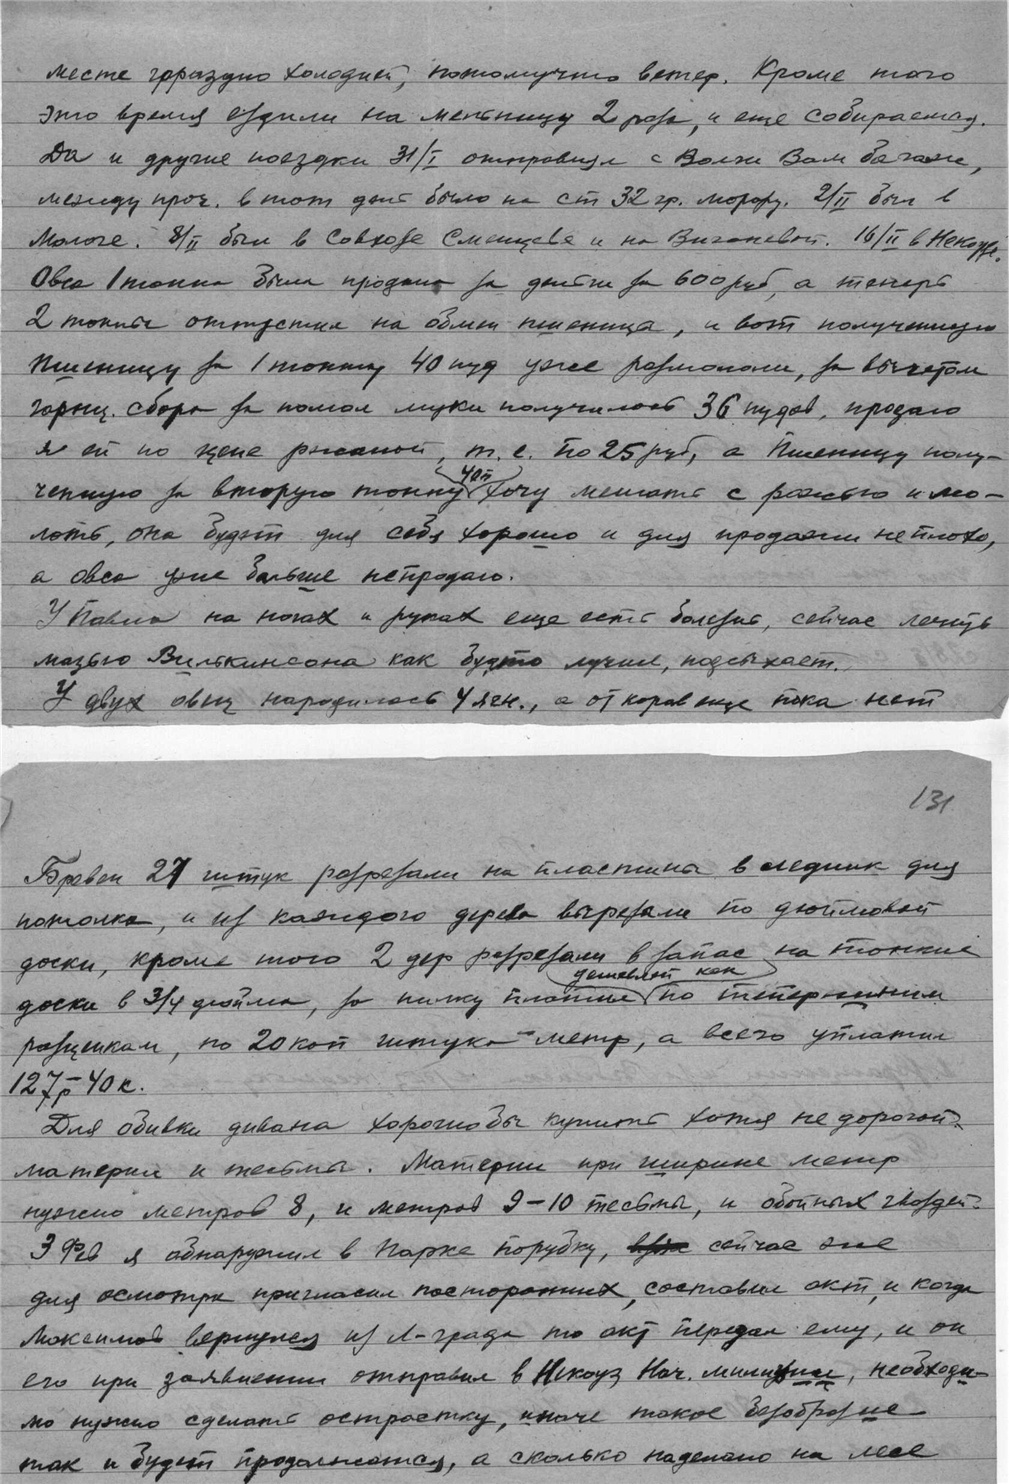 месте гораздно холодней, потомучто ветер. Кроме того
это время ездили на мельницу 2 раза, и еще собираемся.
Да и другие поездки 31/I отправил с Волги Вам багаж,
между проч. в тот день было на ст 32 гр. морозу. 2/II был в
Мологе. 8/II был в Совхозе Сменцеве и на 16/II в Некоузе.
Овса 1 тонна была продана за деньги за 600 руб, а теперь
2 тонны отпустил на обмен пшеница, и вот полученную
Пшеницу за 1 тонну 40 пуд уже размололи, за вычетом
гарнц. сбора за помол муки получилось 36 пудов, продаю
я ей по цене ржаной, т. е. по 25 руб, а Пшеницу полу-
ченную за вторую тонну хочу мешать с рожью и мо-
лоть, она будет для себя хорошо и для продажи неплохо,
а овса уже больше непродаю.
У Павла на ногах и руках еще есть болезнь, сейчас лечуть
мазью Вилькинсона как будто лучше, подсыхает.
У двух овец народилось 4 ягн., а от коров еще пока нет
131
Бревен 27 штук разрезали на пластины в ледник для
потолка, и из каждого дерева вырезали по дюймовой
доски, кроме того 2 дер разрезали в запас на тонкие
дешевле как
доски в 3/4 дюйма, за пилку платил по теперешним
расценкам, по 20 коп штука - метр, а всего уплатил
127р-40к.
Для обивки дивана хорошобы купить хотя не дорогой
материи и тесьмы. Материи при ширине метр
нужно метров 8, и метров 9-10 тесьмы, и обойных гвоздей.
3 Фев я обнаружил в Парке порубку, сейчас же
для осмотра пригласил посторонних, составил акт, и когда
Максимов вернулся из Л-града то акт передал ему, и он
его при заявлении отправил в Некоуз Нач. милиции, необходи-
мо нужно сделать острастку, иначе такое безобразие
так и будет продолжатся, а сколько наделано на лесе